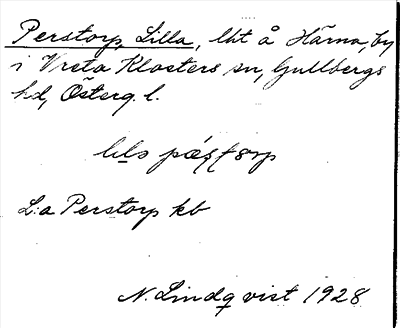 Perstorp, Lilla, lht å Härna, by
i Vreta Klosters sn, Gullbergs
hd, Österg. l.
L:a Perstorp kb
N. Lindqvist 1928